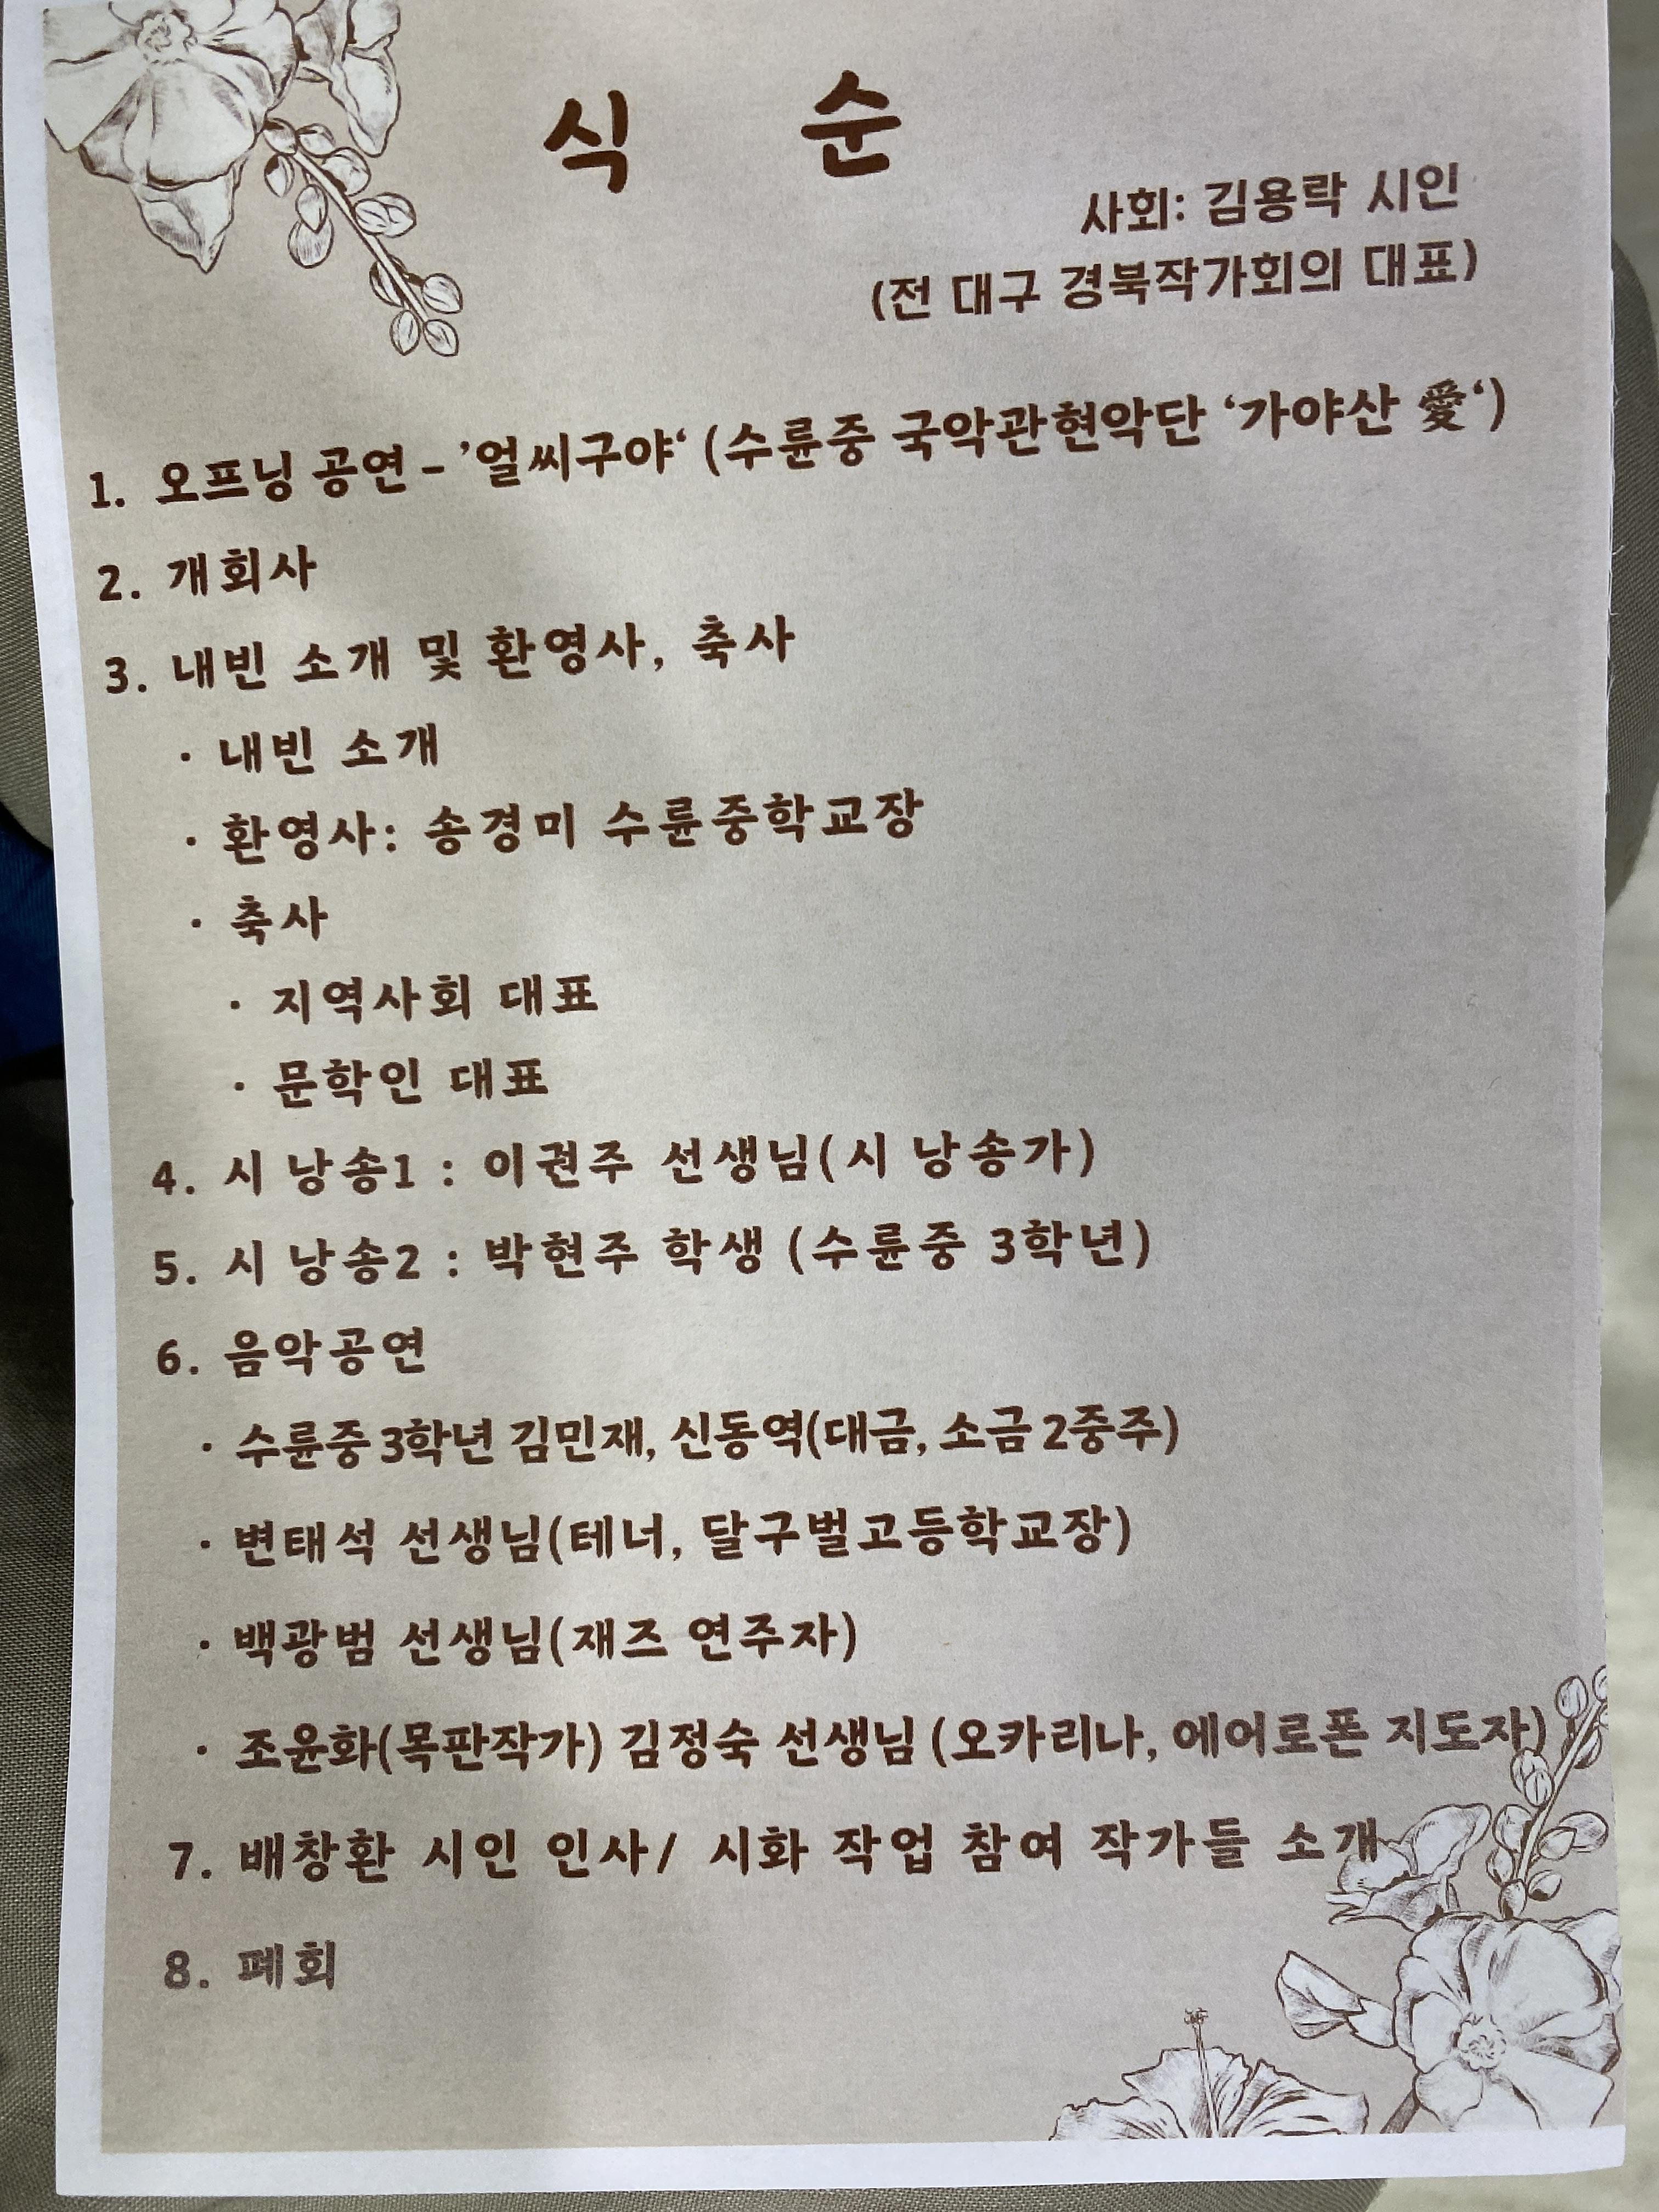 식 순
사회: 김용락 시인
(전 대구 경북작가회의 대표)
1. 오프닝 공연 - ’얼씨구야‘ (수륜중 국악관현악단 ‘가야산 愛‘)
2. 개회사
3. 내빈 소개 및 환영사, 축사
· 내빈 소개
· 환영사: 송경미 수륜중학교장
· 축사
· 지역사회 대표
· 문학인 대표
4. 시 낭송1 : 이권주 선생님(시 낭송가)
5. 시 낭송2 : 박현주 학생 (수륜중 3학년)
6. 음악공연
· 수륜중 3학년 김민재, 신동역(대금, 소금 2중주)
· 변태석 선생님(테너, 달구벌고등학교장)
· 백광범 선생님(재즈 연주자)
· 조윤화(목판작가) 김정숙 선생님 (오카리나, 에어로폰 지도자)
7. 배창환 시인 인사/ 시화 작업 참여 작가들 소개
8. 폐회